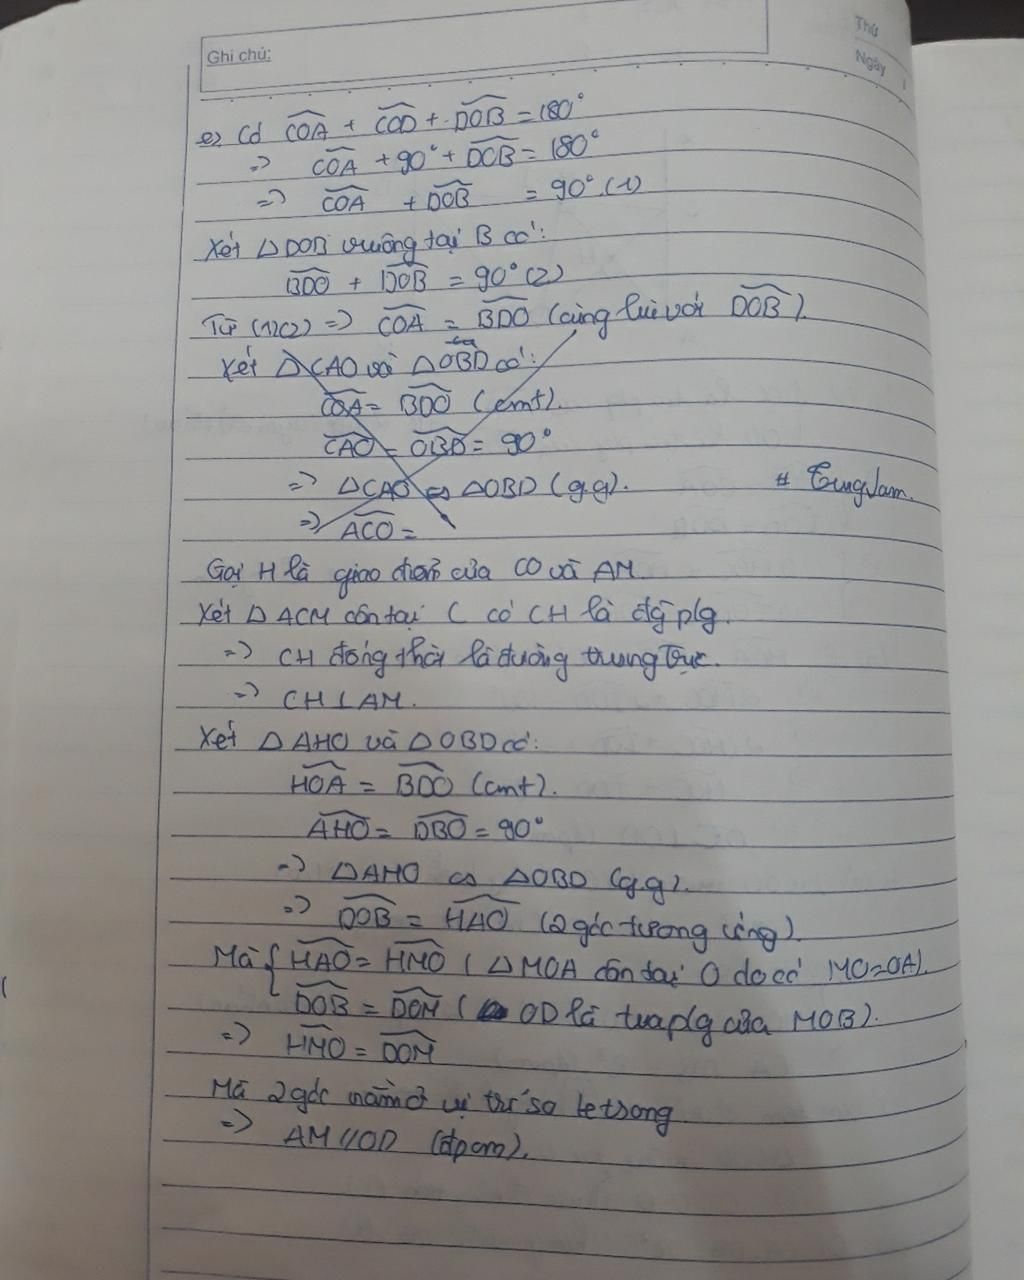 Thứ
Ghi chú:
Ngày
e, Có COA + COD + DOB = 180°
=> COA + 90° + DOB = 180°
=> COA + DOB = 90° (1)
Xét △DOB vuông tại B có:
BDO + DOB = 90° (2)
Từ (1)(2) => COA = BDO (cùng với DOB).
Xét △CAO và △OBD có:
COA = BDO (cmt).
CAO = OBD = 90°
=> △CAO ∽ △OBD (g.g).
=> ACO =
Gọi H là giao điểm của CO và AM.
Xét △ACM cân tại C có CH là plg.
=> CH đồng thời là đường trung trực.
=> CH ⊥ AM.
Xét △AHO và △OBD có:
HOA = BDO (cmt).
AHO = DBO = 90°
=> △AHO ∽ △OBD (g.g).
=> DOB = HAO (2 góc tương ứng).
Mà { HAO = HMO ( △MOA cân tại O do có MO=OA).
DOB = DOM ( OD là plg của MOB).
=> HMO = DOM
Mà 2 góc nằm ở vị trí so le trong
=> AM // OD (đpcm).